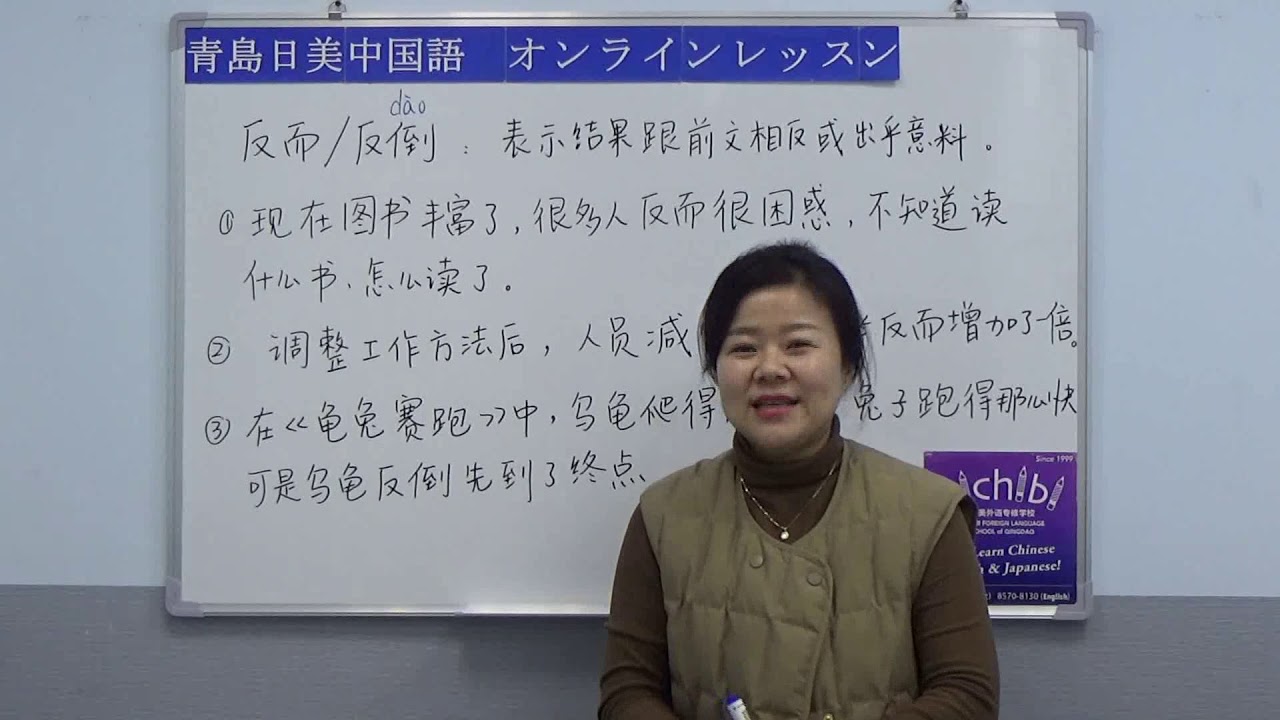 青島日美中国語 オンラインレッスン
dào
反而/反倒：表示结果跟前文相反或出乎意料。
① 现在图书丰富了，很多人反而很困惑，不知道读
什么书、怎么读了。
② 调整工作方法后，人员减 反而增加了一倍。
③ 在《龟兔赛跑》中，乌龟爬得 兔子跑得那么快
可是乌龟反倒先到了终点
Since 1999
外语专修学校
FOREIGN LANGUAGE
SCHOOL of QINGDAO
Learn Chinese
& Japanese!
8570-8130 (English)